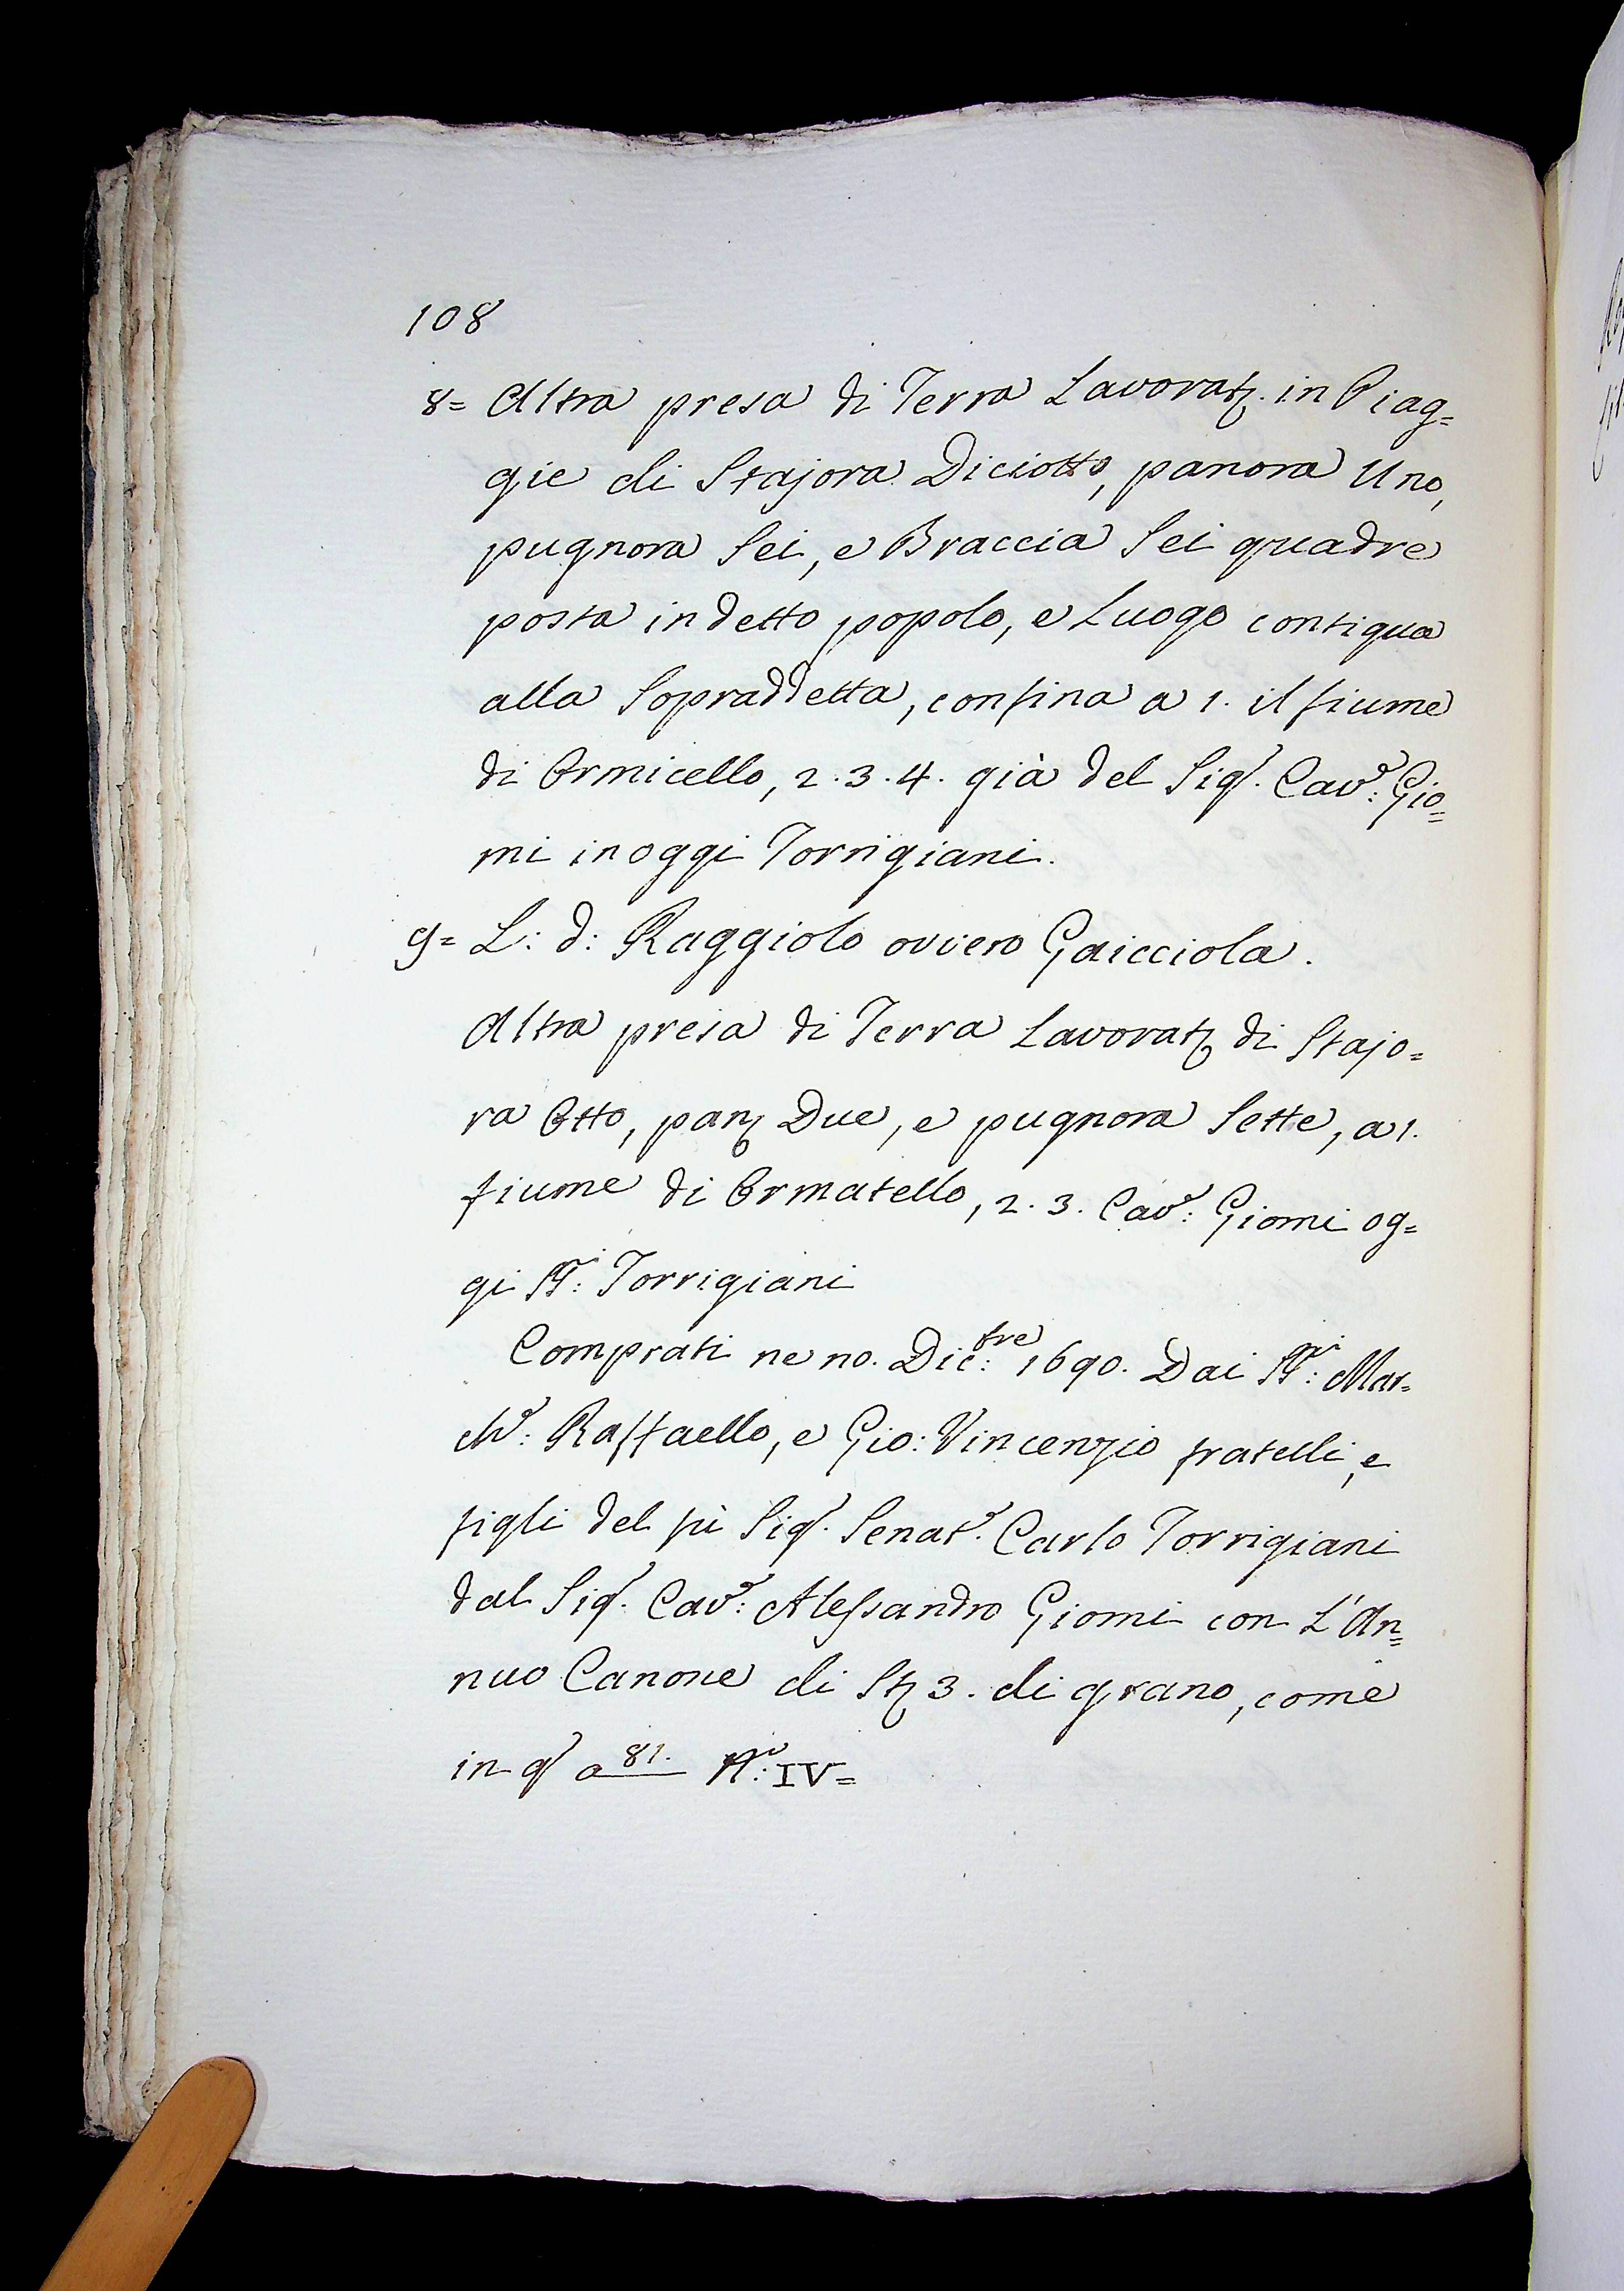 108
8= Altra presa di Terra Lavorat. in Piag=
gie di Stajora Diciotto, panora Uno,
pugnora Sei, e Braccia Sei quadre
posta in detto popolo, e Luogo contigua
alla Sopraddetta, confina a 1. il fiume
di Ormicello, 2. 3. 4. già del Sig.r Cav.e: Gio=
mi in oggi Torrigiani.
9= L: d: Raggiolo ovvero Gaicciola.
Altra presa di Terra Lavorat di Stajo=
ra Otto, pan Due, e pugnora Sette, a 1.
fiume di Ormatello, 2. 3. Cav.e: Giomi og=
gi SS.i: Torrigiani
Comprati ne 10. Dic:bre 1690. Dai SS.ri: Mar=
ch.e: Raffaello, e Gio: Vincenzio fratelli, e
figli del fù Sig.r Senat.e Carlo Torrigiani
dal Sig.r Cav.e: Alessandro Giomi con L'An=
nuo Canone di St 3. di grano, come
in q a 81. N.o: IV=